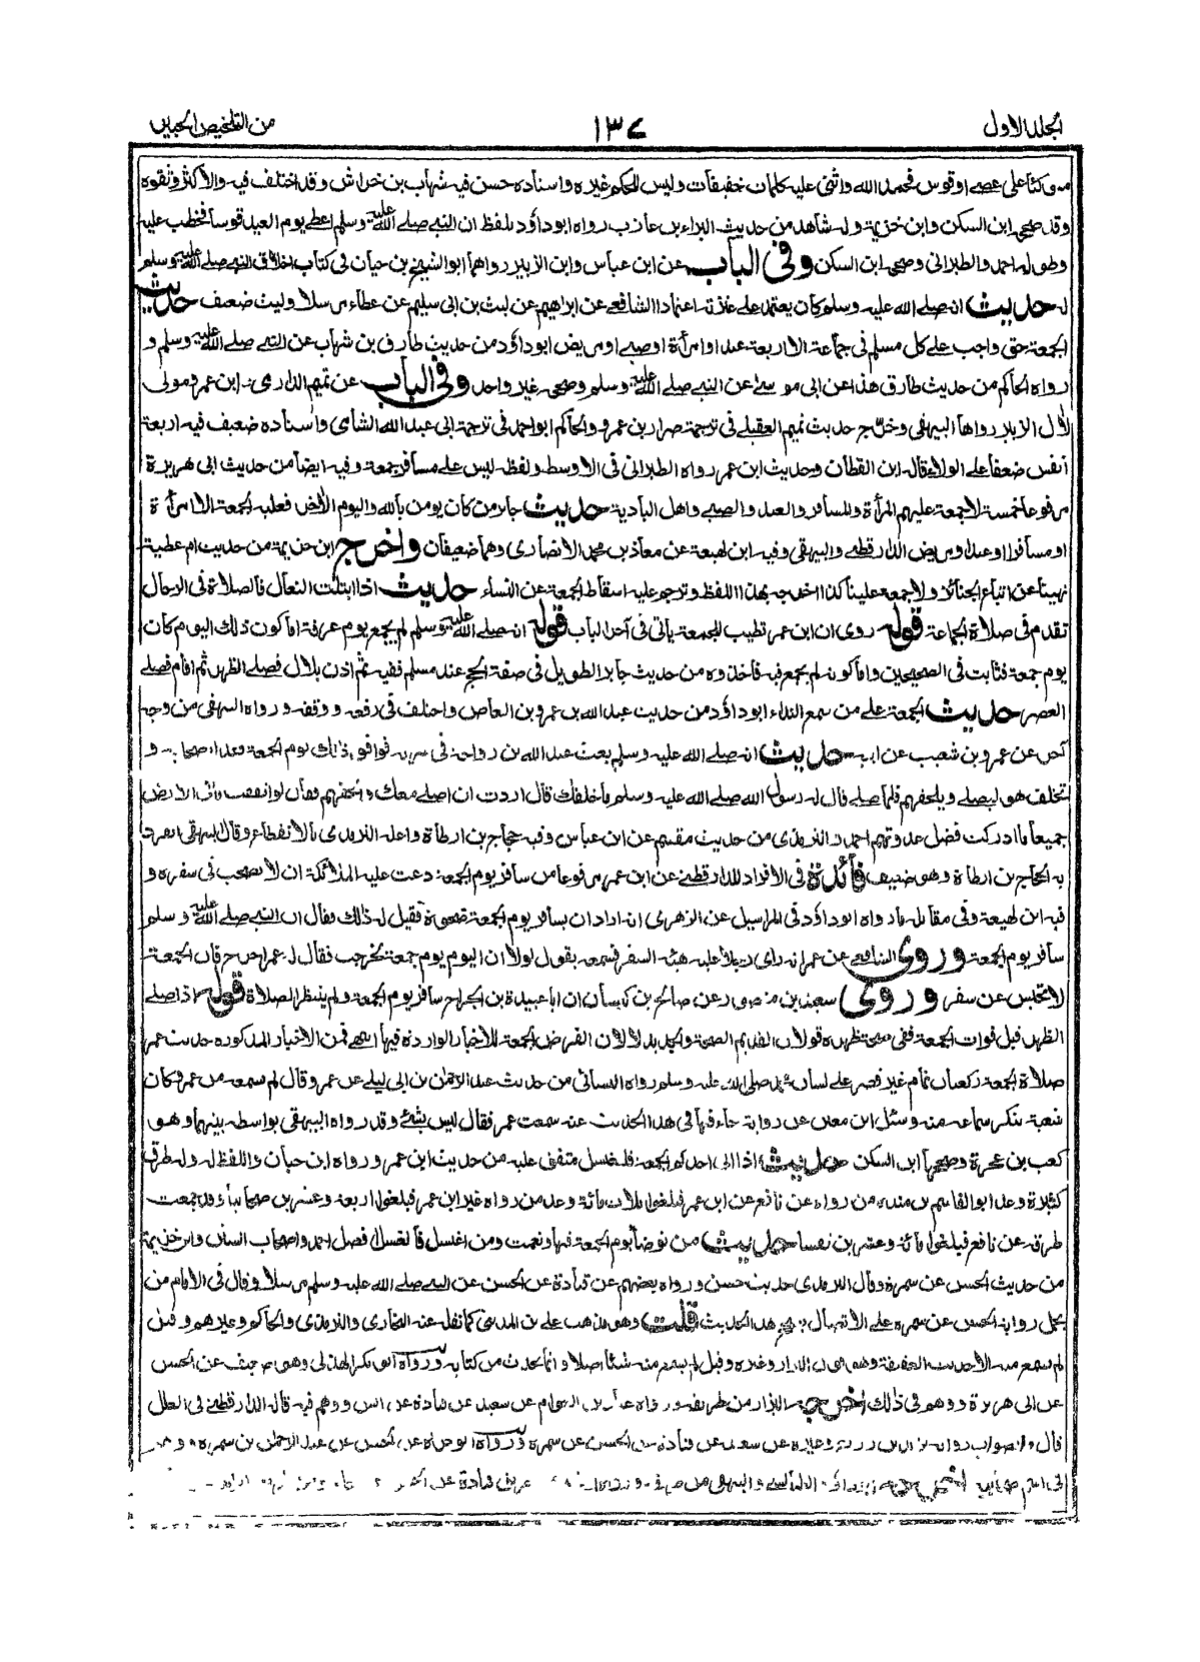 المجلد الاول
١٣٧
من التلخيص الحبير
متوكئا على عصى او قوس فحمد الله واثنى عليه كلمات خفيفات وليس للحكم غيره واسناده حسن فيه شهاب بن خراش وقد اختلف فيه والاكثر وثقوه
وقد صححه ابن السكن وابن خزيمة وله شاهد من حديث البراء بن عازب رواه ابو داؤد بلفظ ان النبي صلى الله عليه وسلم اعطى يوم العيد قوسا فخطب عليه
وطوله احمد والطبراني وصححه ابن السكن وفى الباب عن ابن عباس وابن الزبير رواهما ابو الشيخ بن حيان فى كتاب اخلاق النبي صلى الله عليه وسلم
له حديث انه صلى الله عليه وسلم كان يعتمد على عنزته اعتمادا الشافعى عن ابراهيم عن ليث بن ابى سليم عن عطاء مرسلا وليث ضعيف حديث
الجمعة حق واجب على كل مسلم فى جماعة الا اربعة عبد او امرأة او صبى او مريض ابو داؤد من حديث طارق بن شهاب عن النبي صلى الله عليه وسلم و
رواه الحاكم من حديث طارق هذا عن ابى موسى عن النبي صلى الله عليه وسلم وصححه غير واحد وفى الباب عن تميم الدارى وابن عمر ومولى
لاٰل الزبير رواها البيهقى وخرّج حديث تميم العقيلى فى ترجمة ضرار بن عمرو والحاكم ابو احمد فى ترجمة ابى عبد الله الشامى واسناده ضعيف فيه اربعة
انفس ضعفا على الولاء قاله ابن القطان وحديث ابن عمر رواه الطبرانى فى الاوسط ولفظه ليس على مسافر جمعة وفيه ايضا من حديث ابى هريرة
مرفوعا خمسة لا جمعة عليهم المرأة والمسافر والعبد والصبى واهل البادية حديث جابر من كان يومن بالله واليوم الاٰخر فعليه الجمعة الا امرأة
او مسافرا او عبدا او مريض الدارقطنى والبيهقى وفيه ابن لهيعة عن معاذ بن محمد الانصارى وهما ضعيفان واخرج ابن خزيمة من حديث ام عطية
نهينا عن اتباع الجنائز ولا جمعة علينا كذا اخرجه بهذا اللفظ وترجم عليه اسقاط الجمعة عن النساء حديث اذا ابتلت النعال فالصلاة فى الرحال
تقدم فى صلاة الجماعة قوله روى ان ابن عمر تطيب للجمعة ياتى فى آخر الباب قوله انه صلى الله عليه وسلم لم يجمع يوم عرفة اما كون ذلك اليوم كان
يوم جمعة فثابت فى الصحيحين واما كونه لم يجمع فيه فاخذوه من حديث جابر الطويل فى صفة الحج عند مسلم ففيه ثم اذن بلال فصلى الظهر ثم اقام فصلى
العصر حديث الجمعة على من سمع النداء ابو داؤد من حديث عبد الله بن عمرو بن العاص واختلف فى رفعه ووقفه ورواه البيهقى من وجه
آخر عن عمرو بن شعيب عن ابيه حديث انه صلى الله عليه وسلم بعث عبد الله بن رواحة فى سرية فوافق ذلك يوم الجمعة فغدا اصحابه و
تخلف هو ليصلى ويلحقهم فلما صلى قال له رسول الله صلى الله عليه وسلم ما خلفك قال اردت ان اصلى معك والحقهم فقال لو انفقت ما فى الارض
جميعا ما ادركت فضل غدوتهم احمد والترمذى من حديث مقسم عن ابن عباس وفيه حجاج بن ارطاة واعله الترمذى بالانقطاع وقال البيهقى انفرد
به الحجاج بن ارطاة وهو ضعيف فائدة فى الافراد للدارقطنى عن ابن عمر مرفوعا من سافر يوم الجمعة دعت عليه الملائكة ان لا يصحب فى سفره و
فيه ابن لهيعة وفى مقابله ما رواه ابو داؤد فى المراسيل عن الزهرى انه اراد ان يسافر يوم الجمعة ضحوة فقيل له ذلك فقال ان النبي صلى الله عليه وسلم
سافر يوم الجمعة وروى الشافعى عن عمر انه راى رجلا عليه هيئة السفر فسمعه يقول لولا ان اليوم يوم جمعة لخرجت فقال له عمر اخرج فان الجمعة
لا تحبس عن سفر وروى سعيد بن منصور عن صالح بن كيسان ان ابا عبيدة بن الجراح سافر يوم الجمعة ولم ينتظر الصلاة قوله اذا صلى
الظهر قبل فوات الجمعة ففى صحة ظهره قولان القديم الصحة والجديد لا لان الفرض الجمعة للاخبار الواردة فيها انتهى فمن الاخبار المذكورة حديث عمر
صلاة الجمعة ركعتان تمام غير قصر على لسان محمد صلى الله عليه وسلم رواه النسائى من حديث عبد الرحمٰن بن ابى ليلى عن عمر وقال لم يسمعه من عمر وكان
شعبة ينكر سماعه منه وسئل ابن معين عن رواية جاء فيها فى هذا الحديث عنه سمعت عمر فقال ليس بشئ وقد رواه البيهقى بواسطة بينهما وهو
كعب بن عجرة وصححها ابن السكن حديث اذا اتى احدكم الجمعة فليغتسل متفق عليه من حديث ابن عمر ورواه ابن حبان واللفظ له وله طرق
كثيرة وعد ابو القاسم بن منده من رواه عن نافع عن ابن عمر فبلغوا ثلاث مائة وعد من رواه غير ابن عمر فبلغوا اربعة وعشرين صحابيا وقد جمعت
طرقه عن نافع فبلغوا مائة وعشرين نفسا حديث من توضأ يوم الجمعة فبها ونعمت ومن اغتسل فالغسل افضل احمد واصحاب السنن وابن خزيمة
من حديث الحسن عن سمرة وقال الترمذى حديث حسن ورواه بعضهم عن قتادة عن الحسن عن النبي صلى الله عليه وسلم مرسلا وقال فى الامام من
يحمل رواية الحسن عن سمرة على الاتصال يصحح هذا الحديث قلت وهو مذهب على بن المدينى كما نقله عنه البخارى والترمذى والحاكم وغيرهم وقيل
لم يسمع منه الا حديث العقيقة وهو قول البزار وغيره وقيل لم يسمع منه شئا اصلا وانما يحدث من كتابه ورواه ابو بكر الهذلى وهو ضعيف عن الحسن
عن ابى هريرة ووهم فى ذلك اخرجه البزار من طريقه ورواه عباد بن العوام عن سعيد عن قتادة عن انس ووهم فيه قاله الدارقطنى فى العلل
قال والصواب رواية يزيد بن زريع وغيره عن سعيد عن قتادة عن الحسن عن سمرة ورواه ابو حرة عن الحسن عن عبد الرحمٰن بن سمرة